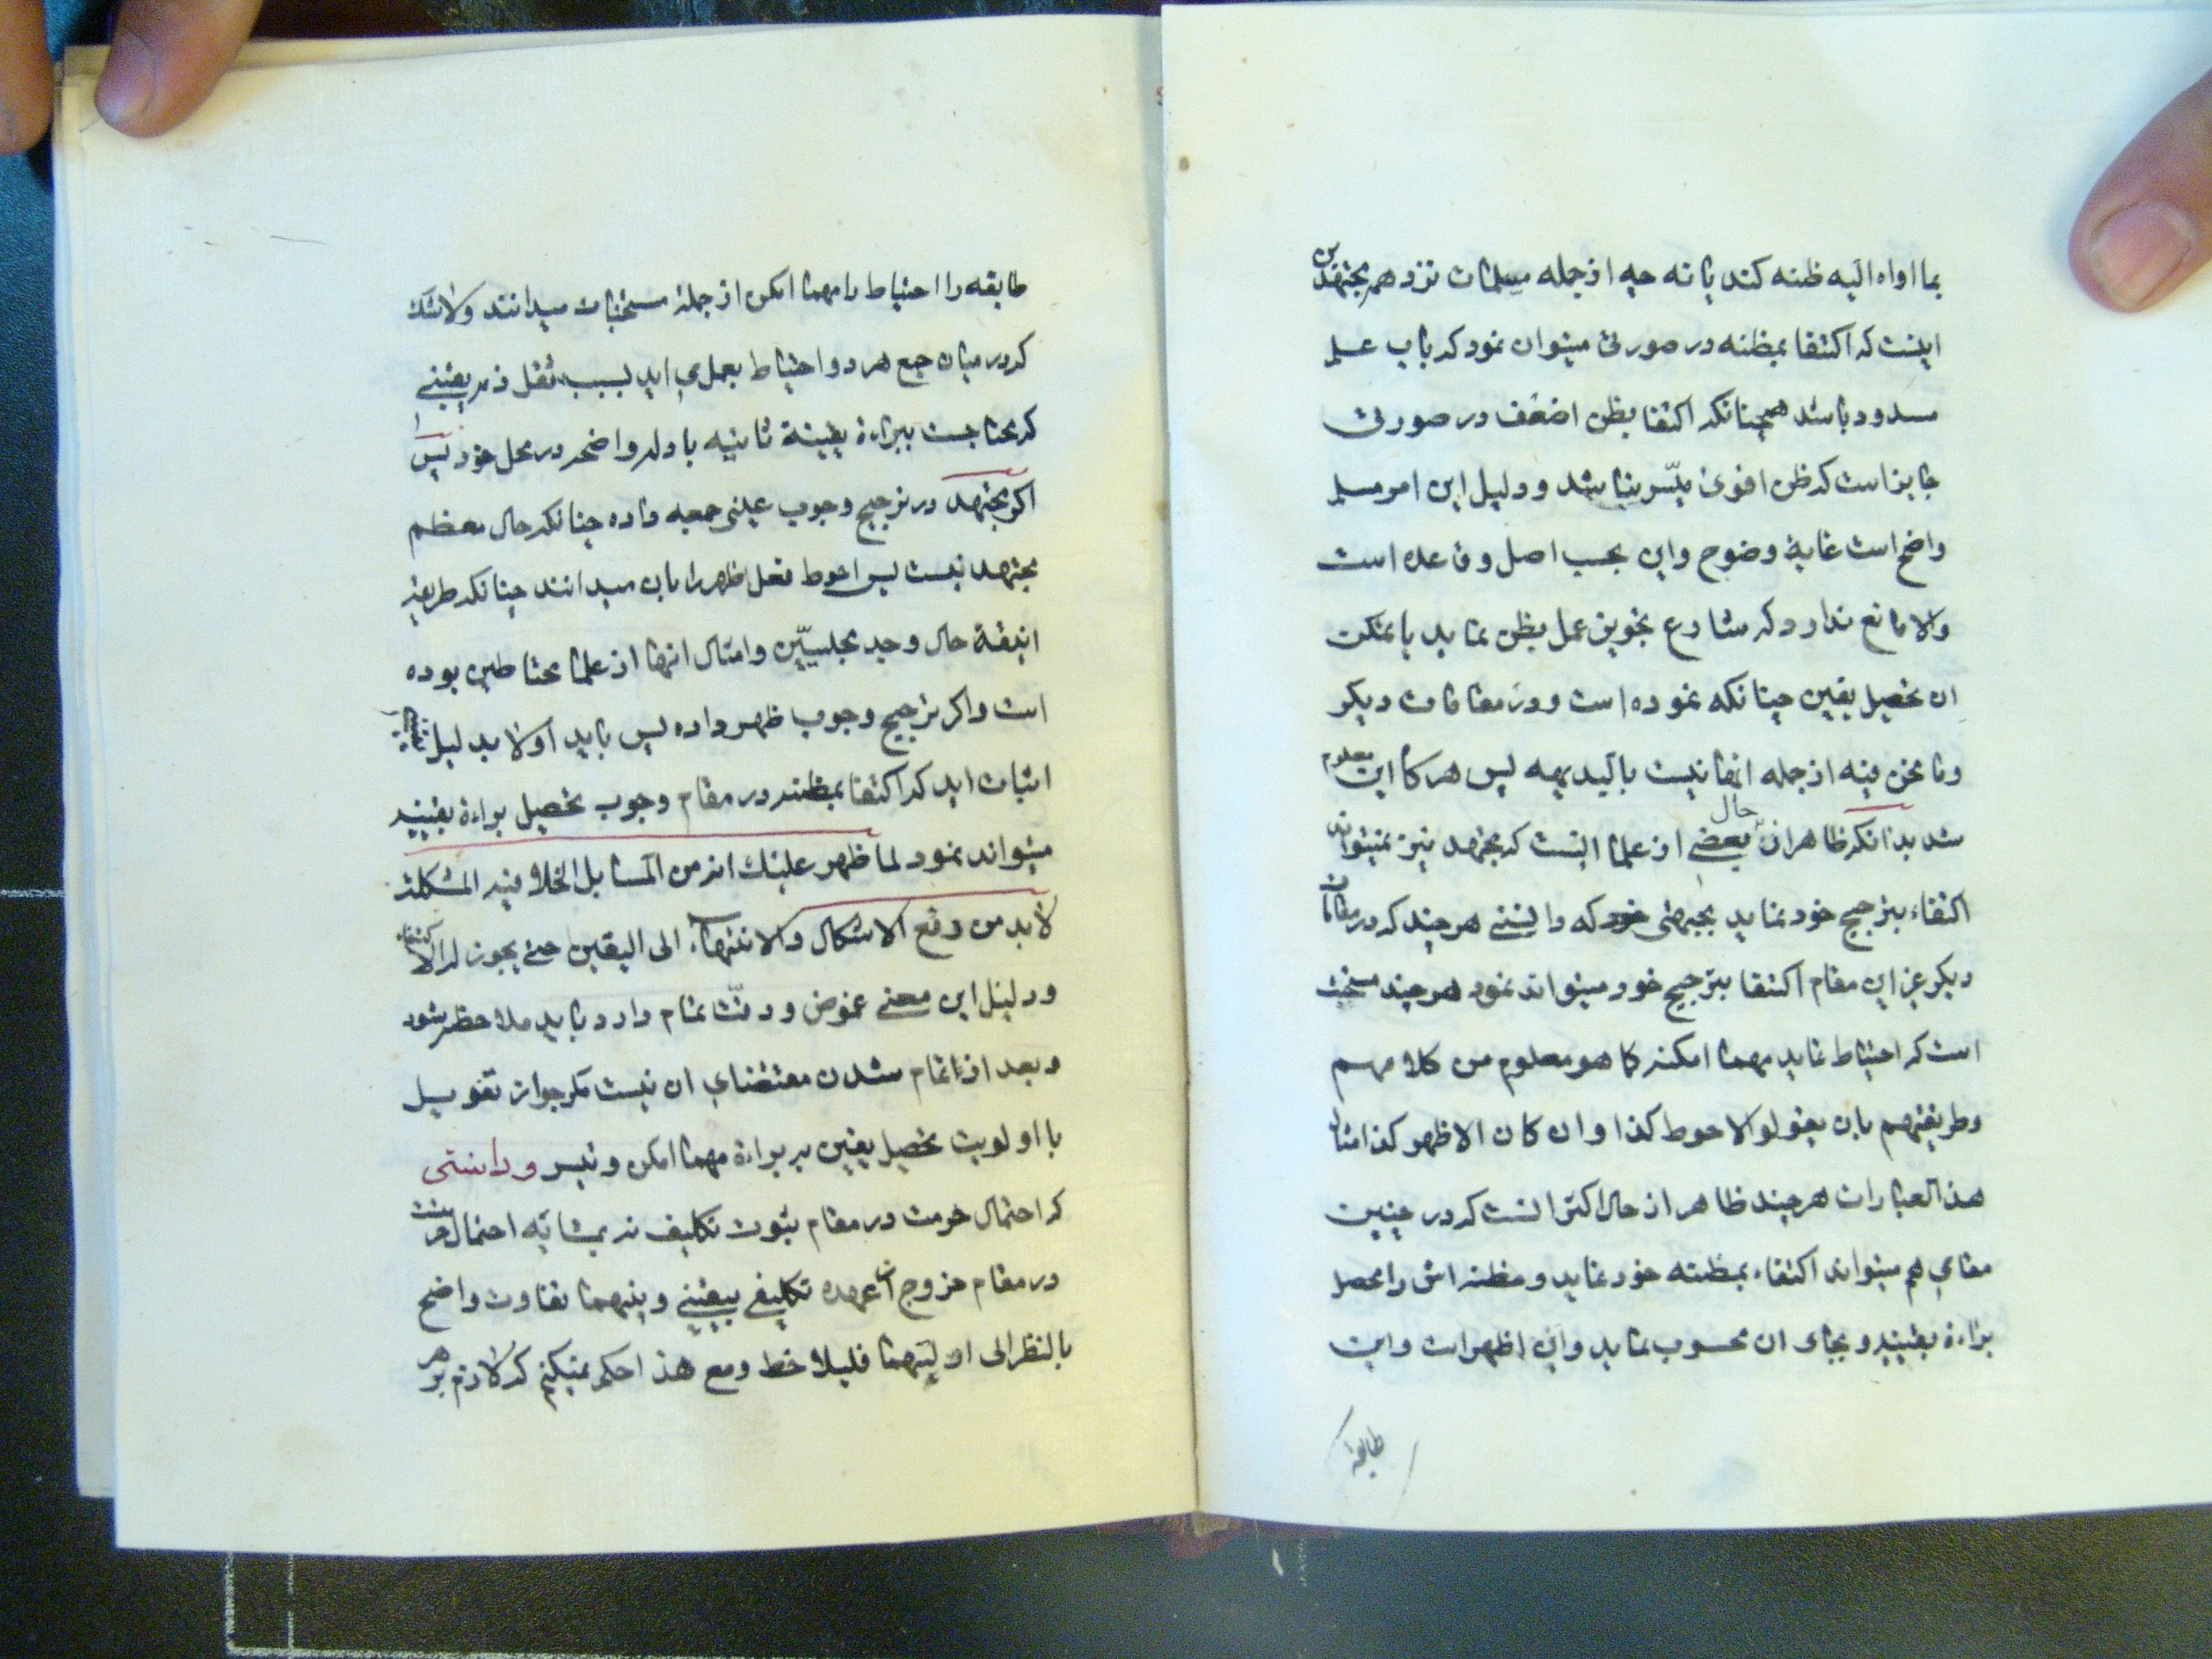 بما اواه الیه ظنه کند یا نه چه از جمله مسلمات نزد هم مجتهدین
اینست که اکتفا بمظنه در صورتی میتوان نمود که باب علم
مسدود باشد همچنانکه اکتفا بظن اضعف در صورتی
جایز است که ظن اقوی میسّر نباشد و دلیل این امر مسلم
واضح است غایة وضوح و این بحسب اصل و قاعده است
والا مانع ندارد که شارع تجویز عمل بظن نماید با تمکن
ان تحصیل یقین چنانکه نموده است و در مقامات دیکر
وما نحن فیه از جمله انها نیست بالبدیهه پس هرکاه این معلوم
شد بدانکه ظاهر از حال بعضی از علما اینست که مجتهد نیز نمیتواند
اکتفاء بترجیح خود نماید بجهتی خود که دانستی هرچند که در مقامات
دیکر غیر این مقام اکتفا بترجیح خود میتواند نمود هرچند مستحب
است که احتیاط نماید مهما امکنه کما هو معلوم من کلامهم
وطریقتهم بان یقولوا الاحوط کذا وان کان الاظهر کذا امثال
هذ العبارات هرچند ظاهر از حال اکثر انست که در چنین
مقامی هم میتواند اکتفاء بمظنه خود نماید و مظنه اش را محصل
براءة یقینیه و بجای ان محسوب نماید و این اظهر است و این
طایفه
طایفه را احتیاط را مهما امکن از جملهٔ مستحبات میدانند ولاشک
که در میان جمع هر دو احتیاط بعمل می اید بسبب شغل ذمه یقینی
که محتاجست ببراءة یقینیة ثانیه با وله واضحه در محل خود پس
اکر مجتهد در ترجیح وجوب عینی جمعه داده چنانکه حال معظم
مجتهد نیست پس احوط فعل ظهر را بان میدانند چنانکه طریقه
انیقهٔ حال وحید مجلسیّین وامثال انها از علما محتاطین بوده
است و اکر ترجیح وجوب ظهر داده پس باید اولا بدلیل
اثبات اید که اکتفا بمظنه در مقام وجوب تحصیل براءة یقینیه
میتواند نمود لما ظهر علیک انه من المسایل الخلافیه المشکلة
لابد من دفع الاشکال والانتهاء الی الیقین حتی یجوز له الاکتفاء
و دلیل این معنی غموض و دقت تمام دارد باید ملاحظه شود
و بعد از اتمام شدن مقتضای ان نیست مکر جواز تعویل
با اولویت تحصیل یقین بر براءة مهما امکن و تیسر و دانستی
که احتمال حرمت در مقام ثبوت تکلیف نه بمثابه احتمال حرمت
در مقام خروج از عهده تکلیفی یقینی و بینهما تفاوت واضح
بالنظر الی ادلیتهما فلیلاحظ ومع هذا حکم نمیکنم که لازم بر هر